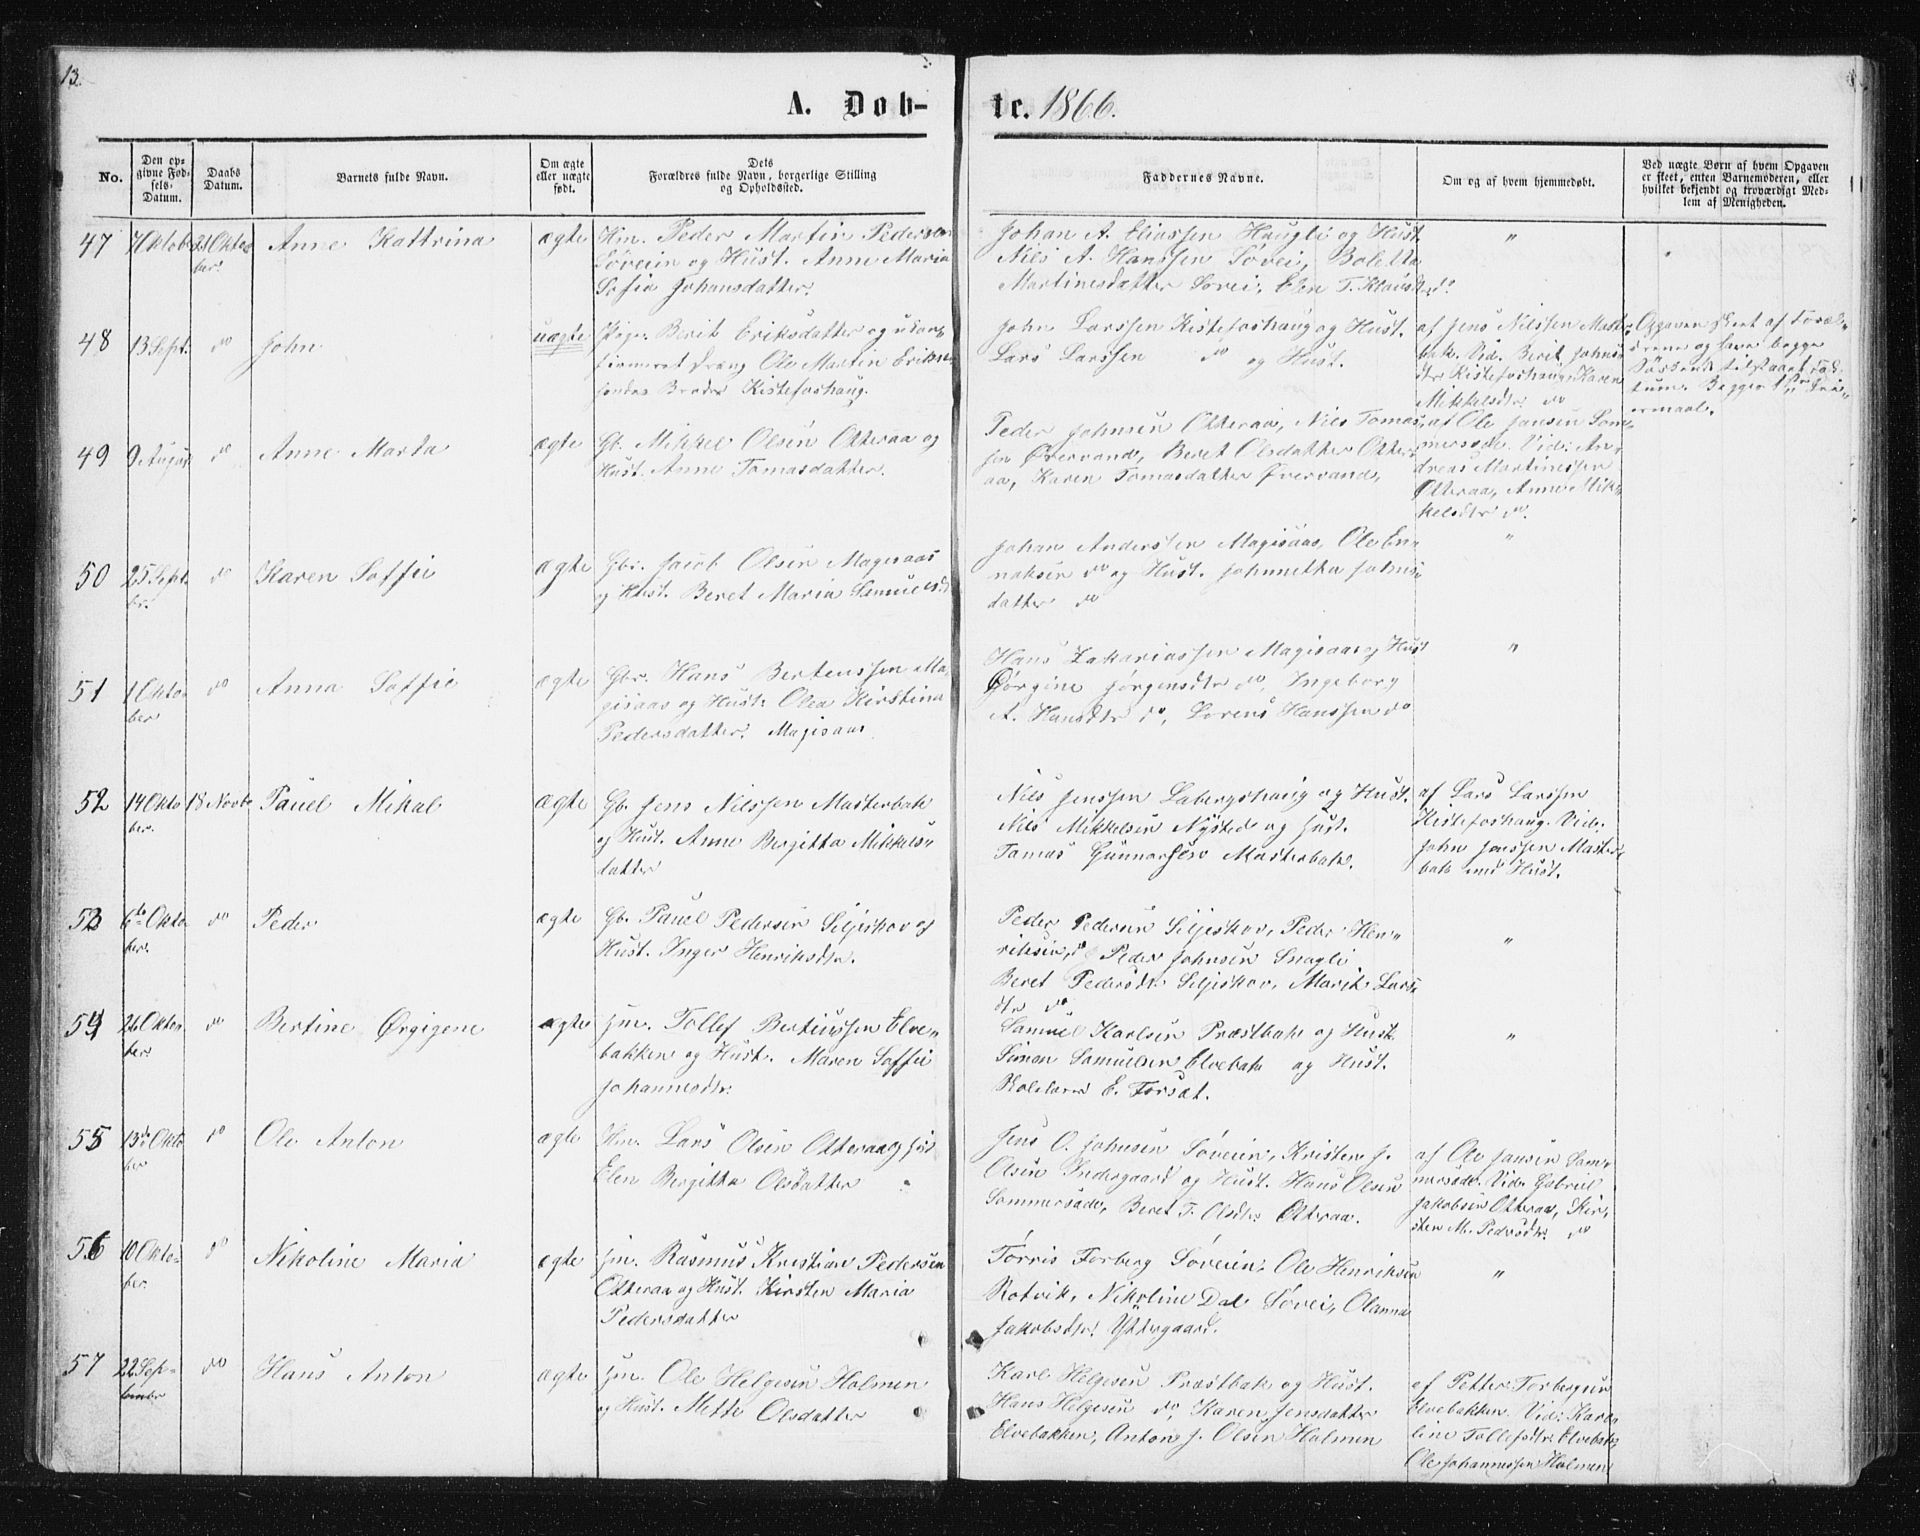 13.
A. Døb-
te. 1866.
No.
Den opgivne Fødsels-Datum.
Daabs Datum.
Barnets fulde Navn.
Om ægte eller uægte født.
Dets Forældres fulde Navn, borgerlige Stilling og Opholdssted.
Faddernes Navne.
Om og af hvem hjemmedøbt.
Ved uægte Børn af hvem Opgaven er skeet, enten Barnemoderen, eller hvilket bekjendt og troværdigt Medlem af Menigheden.
47 21 Oktober. Anne Kattrina ægte Hm. Peder Martin Pedersen
Søveien og Hust. Anne Maria
Sofie Johansdatter.
Johan A. Eliassen Haugli og Hust.
Nils A. Hanssen Søvei, Boletta
Martinesdatter Søvei, Elen T.
"
48 13 Sept. do John uægte Pige Berit Eriksdatter og
Ole Martin
Broder Kistefoshaug.
John Larssen Kistefoshaug og Hust.
Lars Larssen do og Hust.
af Jens Nilssen Mast-
bak. Vid. Berit Johns-
dtr Kistefoshaug, Karen
Mikkelsdtr. do
Opgaven skeet af Foræl-
drene og have begge
Søskende tilstaaet Fac-
tum. Begges 1ste Lei-
ermaal.
49 9 August do Anne Marta ægte Gb. Mikkel Olsen Otteraa og
Hust. Anne Tomasdatter.
Peder Johnsen Otteraa, Nils Tomas-
sen Øvervand, Beret Olsdatter Otter-
aa, Karen Tomasdatter Øvervand,
af Ole Jansen Som-
mersæde. Vid: An-
dreas Martinessen
Otteraa, Anne Mik-
kelsdtr do.
50 25 Septbr. do Karen Soffie ægte Gbr. Jacob Olsen Magisaas
og Hust. Beret Maria Samuelsd.
Johan Andersen Magisaas, Ole En-
oksen do og Hust. Johnetta Johns-
datter do
"
51 1 Oktober do Anna Soffie ægte Gbr. Hans Berteussen Ma-
gisaas og Hust. Olea Kirstina
Pedersdatter. Magisaas.
Hans Zakariassen Magisaas og Hust
Jørgine Jørgensdtr do, Ingeborg
A. Hansdtr do, Lorens Hanssen do
"
52 14 Oktober. 18 Novbr Pauel Mikal ægte Gb. Jens Nilssen Masterbak
og Hust. Anne Bergitta Mikkels-
datter
Nils Jenssen Labergshaug og Hust.
Nils Mikkelsen Nysted og Hust.
Tomas Gunnarsen Masterbak.
af Lars Larssen
Kistefoshaug. Vid:
John Jenssen Master-
bak med Hust.
53 6te Oktober. do Peder ægte Gb. Pauel Pedersen Siljeskov og
Hust. Inger Henriksdtr.
Peder Pedersen Siljeskov, Peder Hen-
riksen, do Peder Johnsen Snogli.
Beret Pedersdtr Siljeskov, Marit Lars-
dtr do
"
54 26 Oktober. do Bertine Ørgigene ægte Hm. Tollef Berteussen Elve-
bakken og Hust. Maren Soffie
Johannesdtr.
Samuel Karlsen Præstbak og Hust.
Simon Samuelsen Elvebak og Hust.
Skolelærer E. Forset.
"
55 13de Oktober do Ole Anton ægte Hm. Lars Olsen Otteraa og Hust
Elen Bergitta Olsdatter
Jens O. Johnsen Søveien, Kristen J.
Olsen Indergaard og Hust. Hans Olsen
Sommersæde, Beret T. Olsdtr. Otteraa.
af Ole Jansen Som-
mersæde. Vid. Gabriel
Jakobsen Otteraa, Kir-
sten M. Pedersdtr. do
56 10 Oktober. do Nikoline Maria ægte Hm. Rasmus Kristian Pedersen
Otteraa og Hust. Kirsten Maria
Pedersdatter
Tørris Torberg Søveien, Ole Henriksen
Rotvik, Nikoline Dal Søvei, Olanna
Jakobsdtr. Yttergaard.
"
57 22 September do Hans Anton ægte Hm. Ole Helgesen Holmen
og Hust. Mette Olsdatter
Karl Helgesen Præstbak og Hust.
Hans Helgesen do, Karen Jensdatter
Elvebakken, Anton J. Olsen Holmen
af Petter Torbergsen
Elvebakken. Vid: Karo-
line Tollefsdtr. Elvebak,
Ole Johannessen Holmen